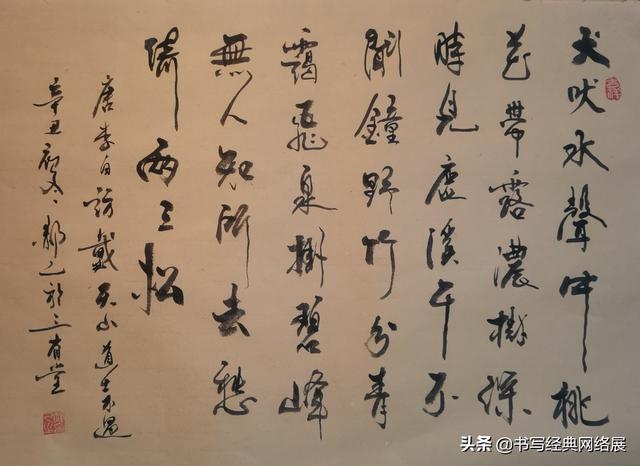 犬吠水聲中桃
花帶露濃樹深
時見鹿溪午不
聞鐘野竹分青
靄飛泉掛碧峰
無人知所去愁
倚兩三松
唐李白訪戴天山道士不遇
辛丑初三有堂
头条 @书写经典网络展